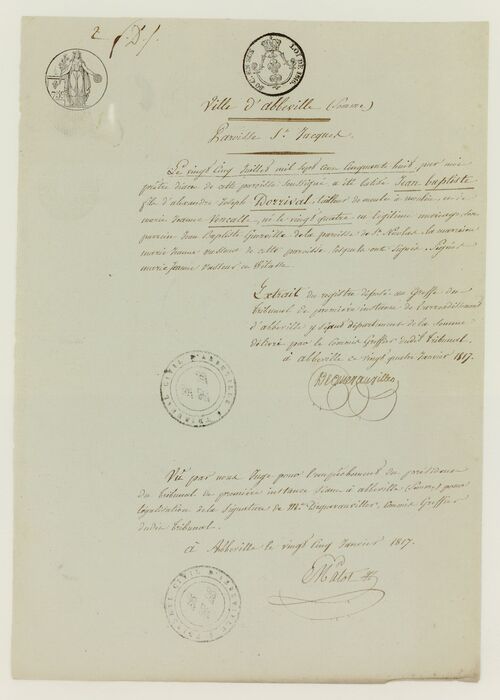 2
Ville d'abbeville (Somme)
Paroisse St. Jacques
Le vingt cinq Juillet mil sept cen cinquante huit, par moi
prêtre diacre de cette paroisse soussigné a été batisé Jean baptiste
fils d'alexandre Joseph Dorrival, et de
marie Jeanne né le vingt quatre en legitime mariage, son
parrain Jean Baptiste de la paroisse de St. Nicolas, la marraine
marie Jeanne de cette paroisse, lesquels ont signés. Signés
marie Jeanne
Extrait du registre déposé au Greffe du
tribunal de première instance de l'arrondissement
d'abbeville, département de la Somme
délivré par le Commis Greffier dudit tribunal.
à abbeville ce vingt quatre Janvier 1817.
Vu par nous Juge pour l'empêchement du président
du tribunal de première instance séant à abbeville (Somme) pour
légalisation de la signature de Mr. Commis Greffier
dudit tribunal.
à Abbeville le vingt cinq Janvier 1817.